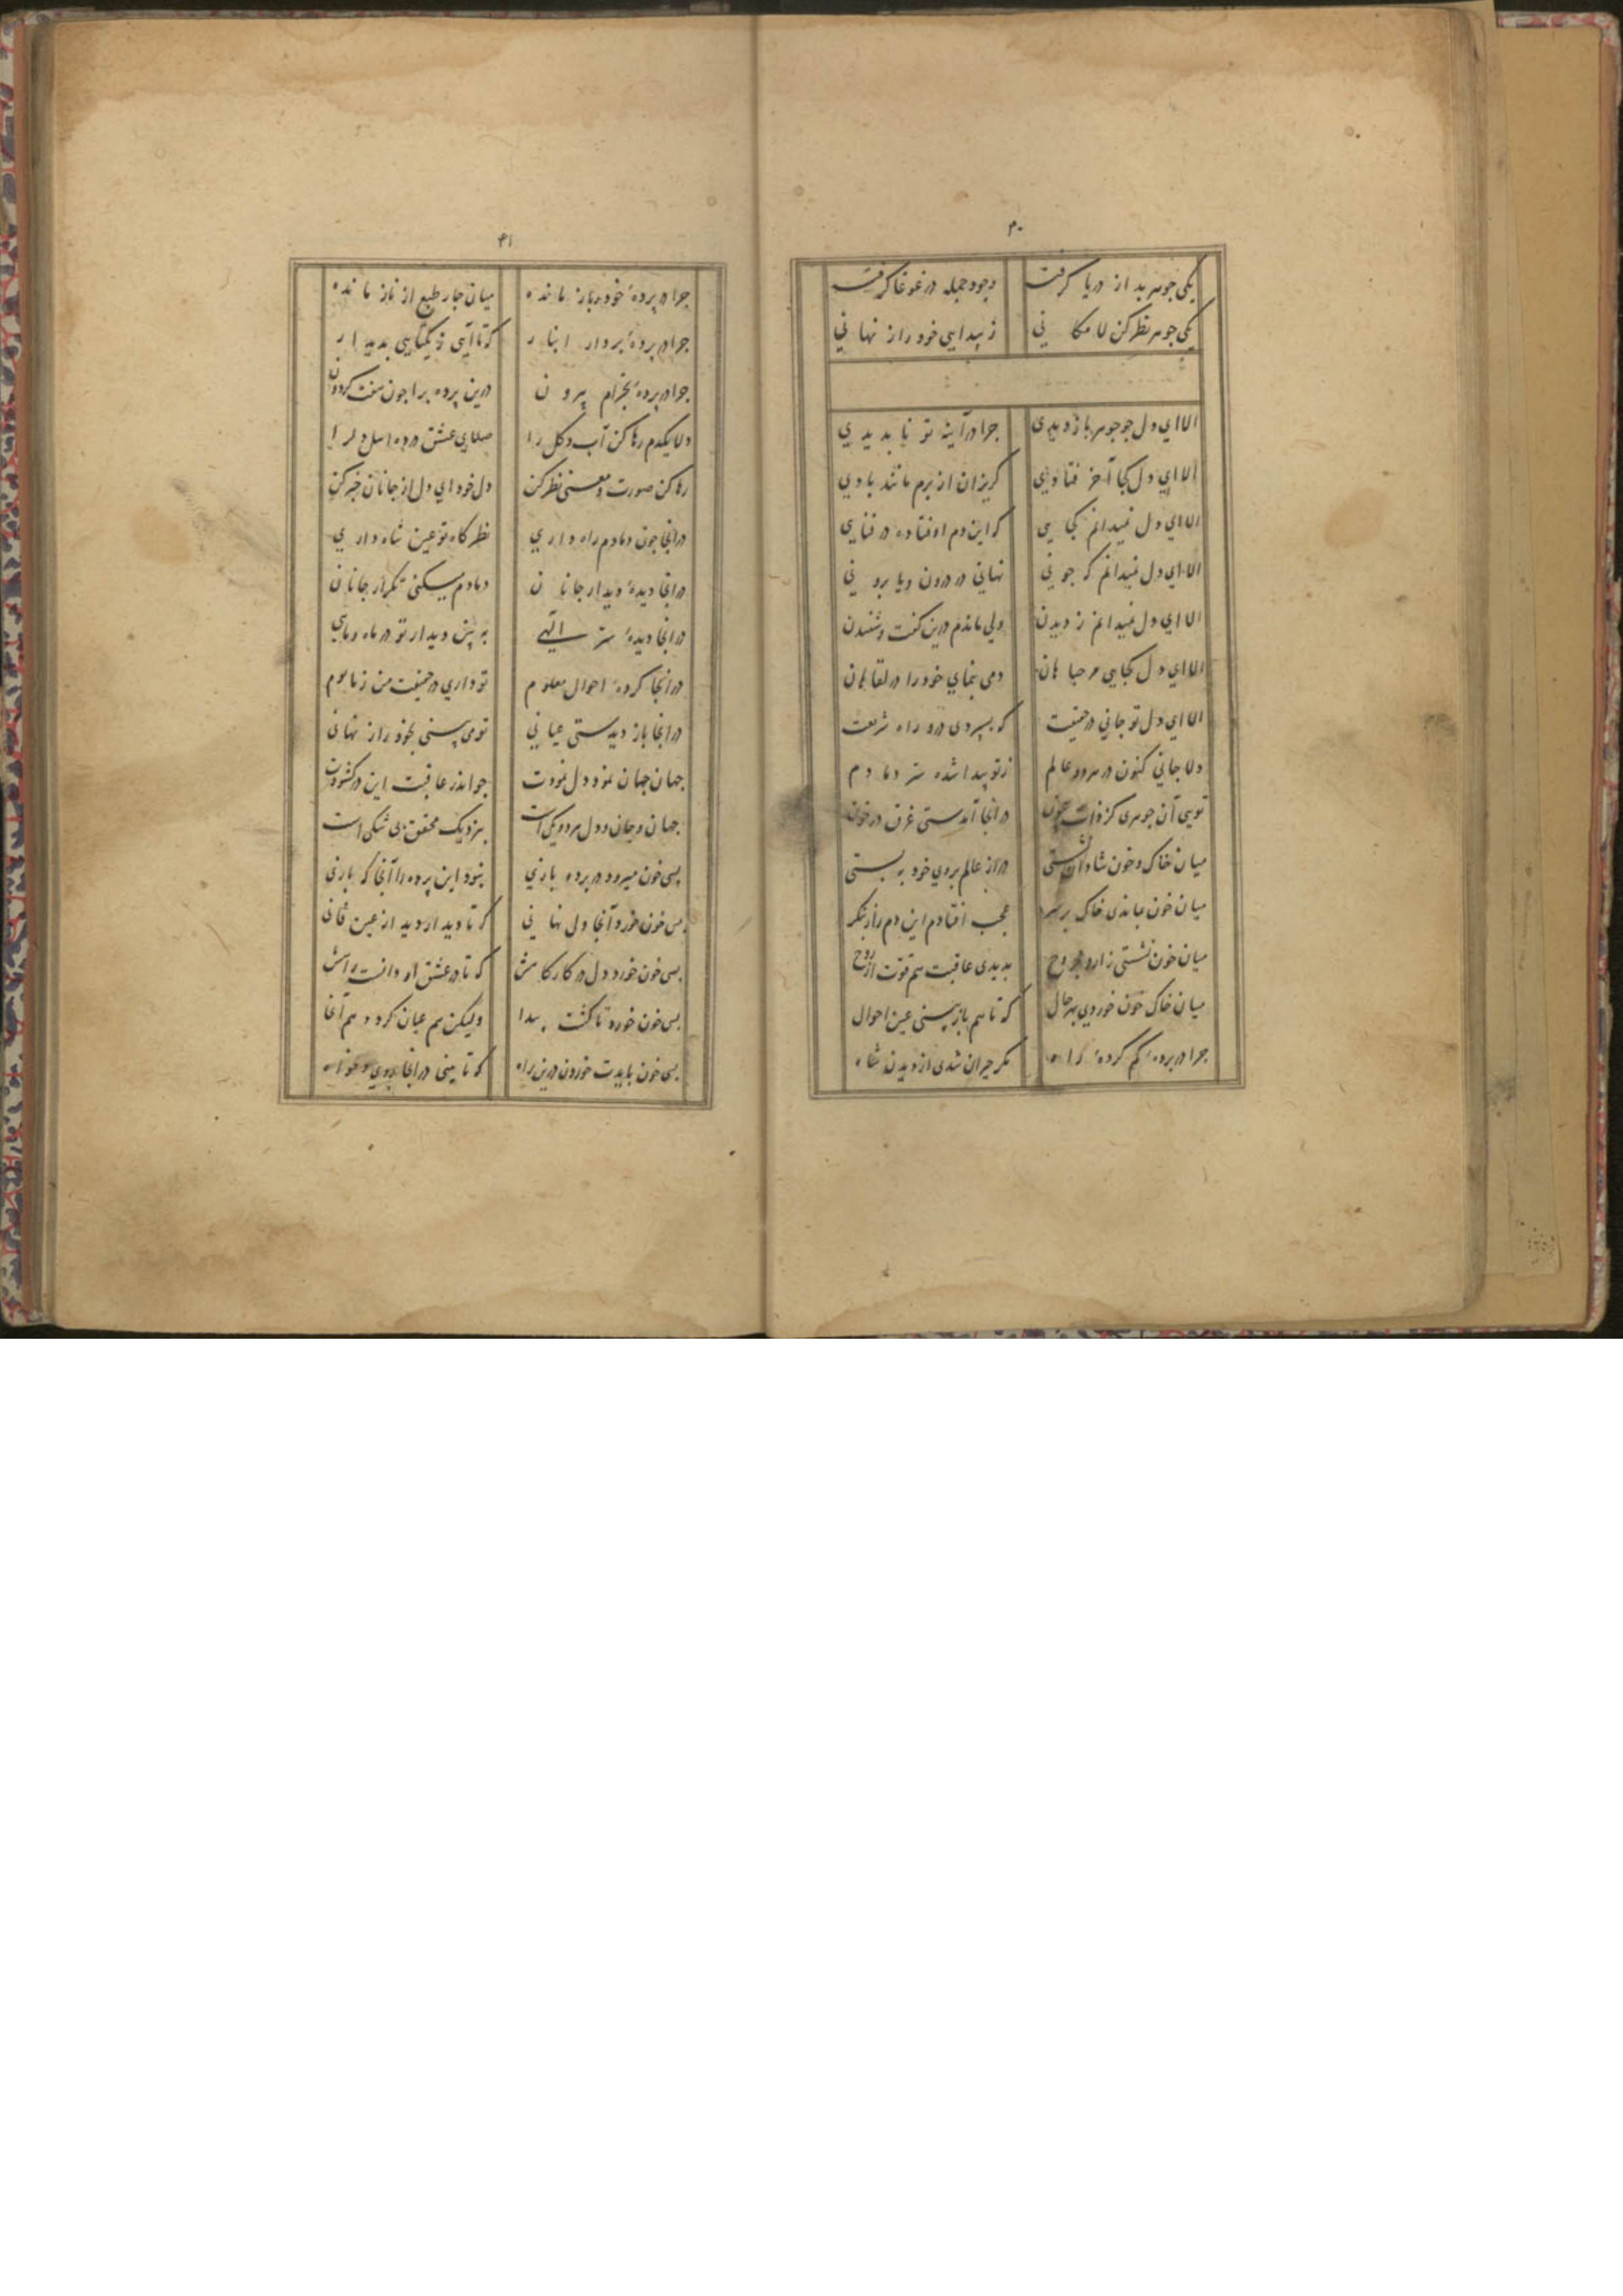 ۴۰
یکی جوهر بد از دریا گرفت وجود جمله در غوغا گرفت
یکی جوهر نظر کن لا مکانی ز پیدایی خود راز نهانی
الا ای دل چو جوهر باز دیدی چرا در آینه تو ناپدیدی
الا ای دل کجا آخر فتادی گریزان از برم مانند بادی
الا ای دل نمیدانم کجایی که این دم اوفتاده در فنایی
الا ای دل نمیدانم که چونی نهانی در درون ویا برونی
الا ای دل نمیدانم ز دیدن ولی ماندم درین گفت وشنیدن
الا ای دل کجایی دمی بنمای خود را در لقا هان
الا ای دل تو جانی در حقیقت که بسپردی درو راه شریعت
دلا جانی کنون در هر دو عالم ز تو پیدا شده سر دمادم
تویی آن جوهری کز ذات در آنجا آمدستی غرق در خون
میان خاک وخون شادان نشستی در از عالم بروی خود به بستی
میان خون بماندی خاک بر سر عجب افتادم این دم راز بنگر
میان خون نشستی زار و مجروح بدیدی عاقبت هم قوت از روح
میان خاک خون خوردی بهر حال که تا هم باز بینی عین احوال
چرا در پردهٔ گم کردهٔ راه مگر حیران شدی از دیدن شاه
۴۱
چرا در پردهٔ خود باز مانده میان چار طبع از ناز مانده
چرا در پردهٔ بردار اینار که تا آیی ز یکتایی پدیدار
چرا در پردهٔ بخرام بیرون درین پرده برا چون هفت گردون
دلا یکدم رها کن آب وگل را صلای عشق درده اهل دل را
رها کن صورت ومعنی نظر کن دل خود ای دل از جانان خبر کن
در آنجا چون دمادم راه داری نظر گاه تو عین شاه داری
در آنجا دیدهٔ دیدار جانان دمادم میکنی تکرار جانان
در آنجا دیدهٔ سر الهی به بین دیدار تو در ماه وماهی
در آنجا کردهٔ احوال معلوم تو داری در حقیقت من زمابوم
در آنجا باز دیدستی عیانی تو می بینی بخود راز نهانی
جهان جهان نمود دل نمودت چو اندر عاقبت این در گشودت
جهان وجان ودل هر دو یکی است بنزدیک محقق بی شکی است
بسی خون میرود در پرده بازی بنود این پرده را آنجا که بازی
بسی خون خورد آنجا دل نهانی که تا دیدار دید از عین فانی
بسی خون خورد دل در کارگاهش که تا در عشق او دانست راهش
بسی خون خورد تا گشت پیدا ولیکن هم عیان گردد هم آنجا
بسی خون بایدت خوردن درین راه که تا بینی در آنجا